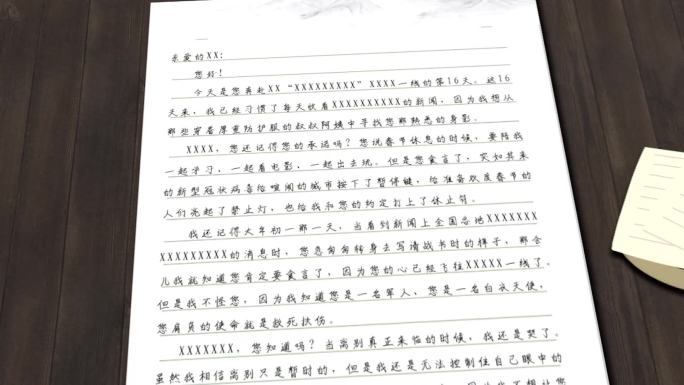 亲爱的XX:
您好!
今天是您奔赴XX“XXXXXXXXX”XXXX一线的第16天。这16
天来,我已经习惯了每天收看XXXXXXXXXX的新闻,因为我想从
那些穿着厚重防护服的叔叔阿姨中寻找您那熟悉的身影。
XXXX,您还记得您的承诺吗?您说春节休息的时候,要陪我
一起学习,一起看电影,一起出去玩。但是您食言了,突如其来
的新型冠状病毒给喧闹的城市按下了暂停键,给准备欢度春节的
人们亮起了禁止灯,也给我和您的约定打上了休止符。
我还记得大年初一那一天,当看到新闻上全国各地XXXXXXX
XXXXXXXXXX的消息时,您急匆匆转身去写请战书时的样子,那会
儿我就知道您肯定要食言了,因为您的心已经飞往XXXXX一线了。
但是我不怪您,因为我知道您是一名军人,您是一名白衣天使,
您肩负的使命就是救死扶伤。
XXXXXXX,您知道吗?当离别真正来临的时候,我还是哭了。
虽然我相信离别只是暂时的,但是我还是无法控制住自己眼中的